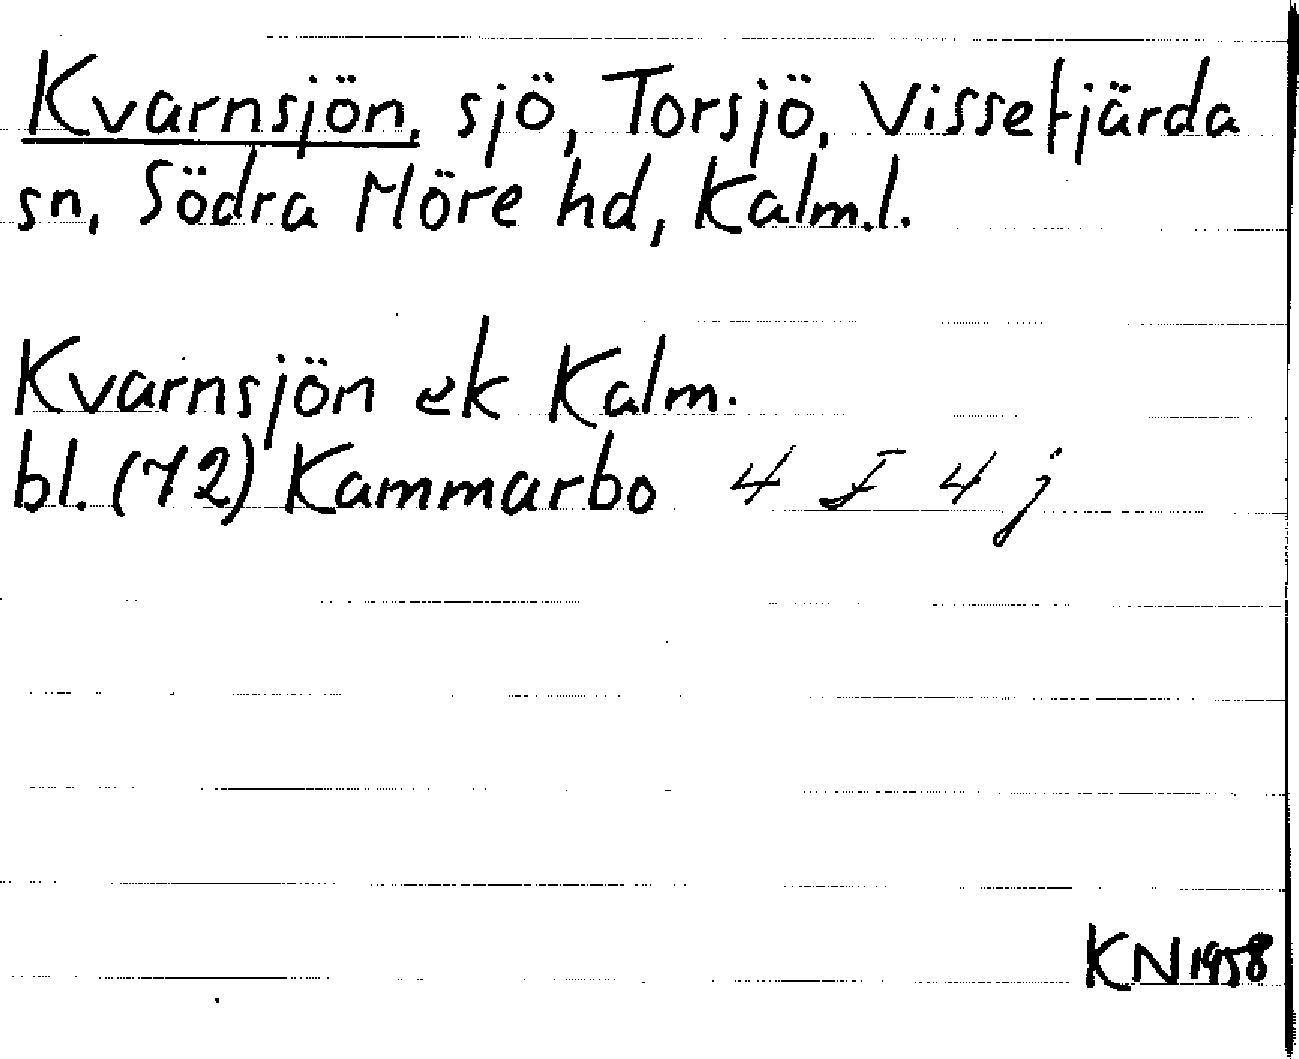 Kvarnsjön, sjö, Torsjö, Vissefjärda
sn, Södra Möre hd, Kalm.l.
Kvarnsjön ek Kalm.
bl. (72) Kammarbo 4 F 4 j
KN 1958